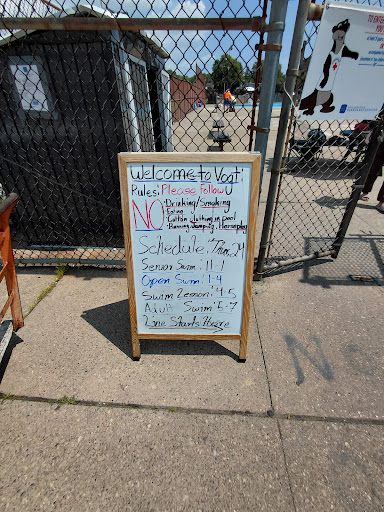 Welcome to Vogt!
Rules: Please Follow
NO
• Drinking/Smoking
• Eating
• Cotton clothing in pool
• Running, Jumping, Horseplay
Schedule: Thur, 24
Senior Swim: 11-1
Open Swim: 1-4
Swim Lesson: 4-5
Adult Swim: 5-7
Line Starts Here
TO EN
YOU
No